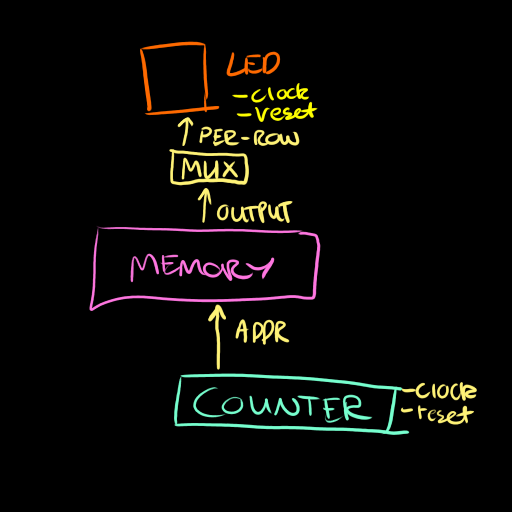 LED
-clock
-reset
PER-ROW
MUX
OUTPUT
MEMORY
ADDR
COUNTER
-clock
-reset